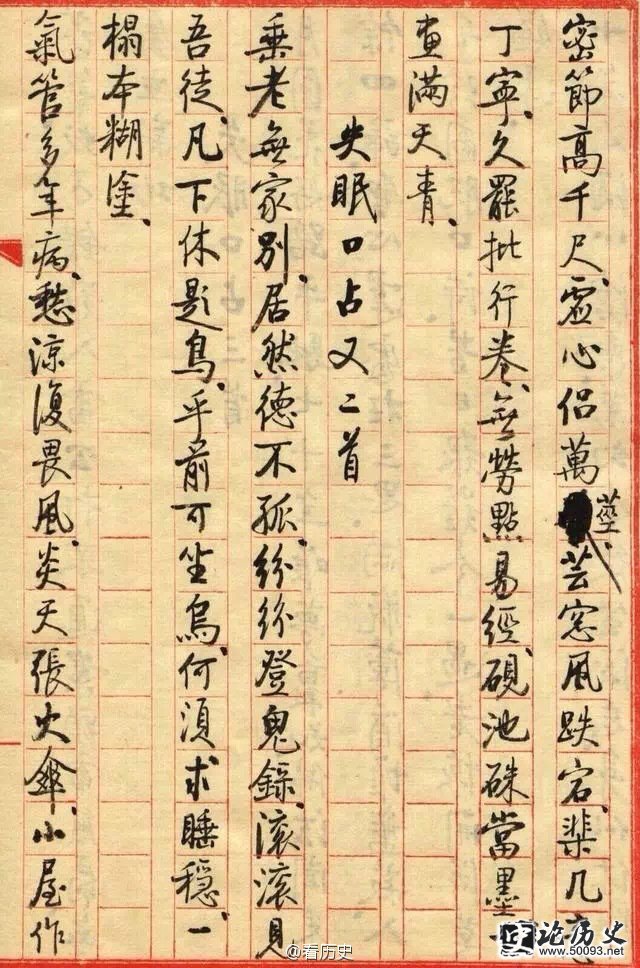 密節高千尺、虛心侶萬莖、芸窓風跌宕、棐几
丁寧、久罷批行卷、無勞點易經、硯池硃當墨、
畫滿天青、
失眠口占又二首
垂老無家別、居然德不孤、紛紛登鬼錄、滾滾見
吾徒、凡下休題鳥、乎前可坐烏、何須求睡穩、一
榻本糊塗、
氣管多年病、愁涼復畏風、炎天張火傘、小屋作
@看历史
论历史
www.50093.net